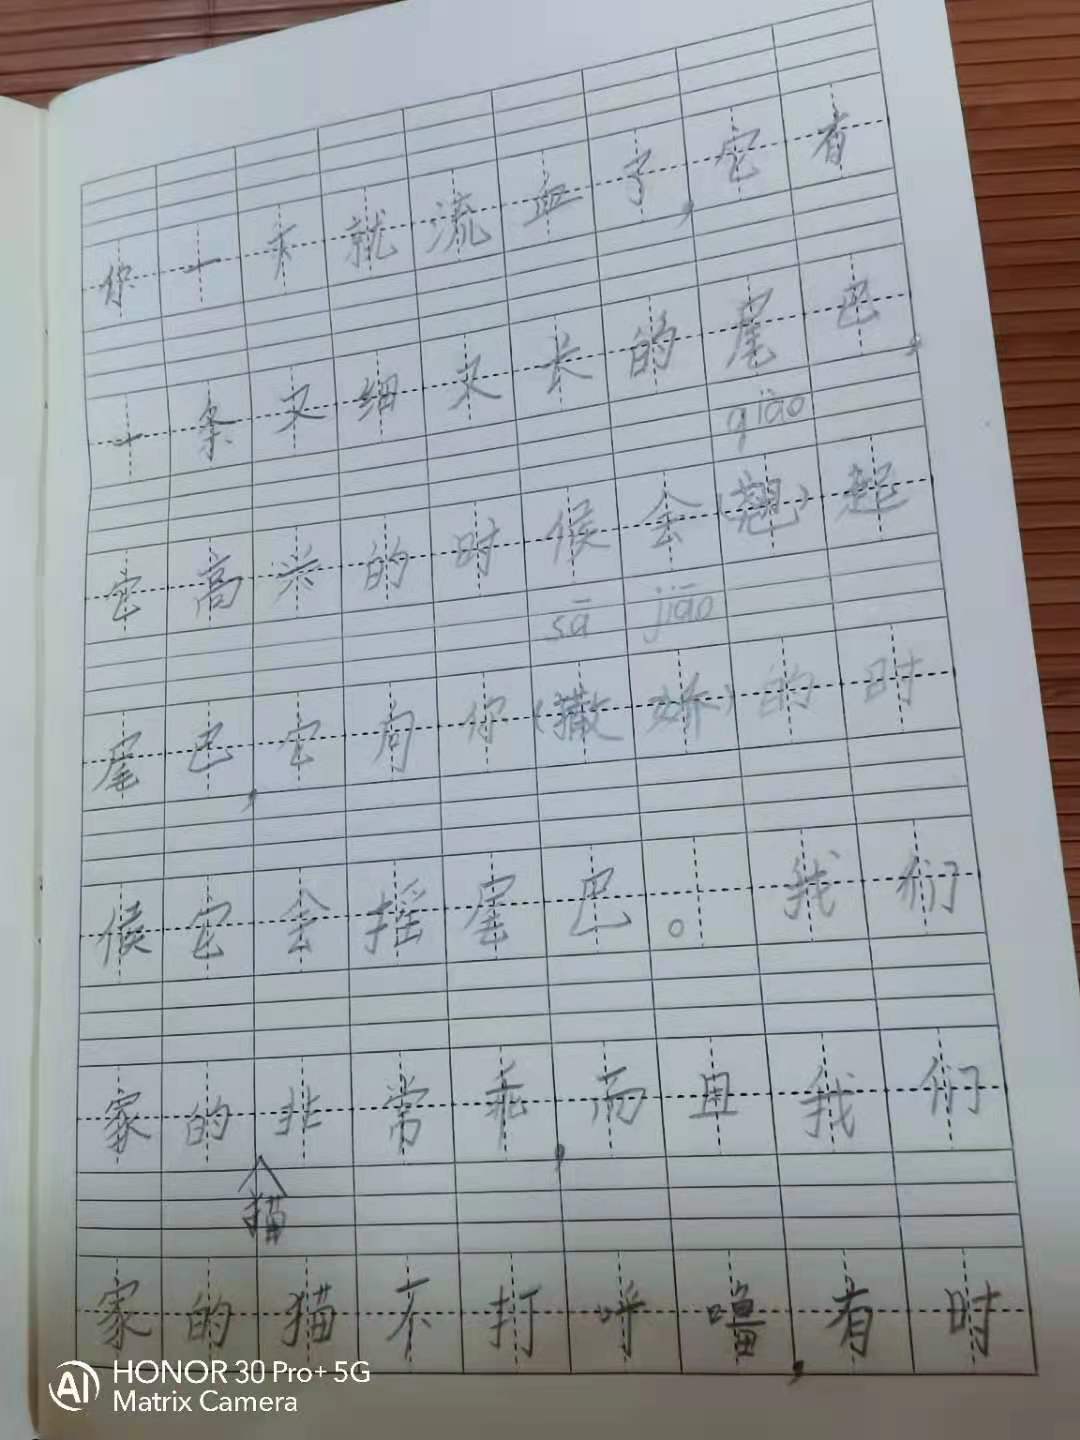 你一下就流血了,它有
一条又细又长的尾巴,
qiào
它高兴的时候会(翘)起
sā jiāo
尾巴,它向你(撒娇)的时
候它会摇尾巴。我们
家的非常乖,而且我们
猫
家的猫不打呼噜,有时
HONOR 30 Pro+ 5G
AI Matrix Camera